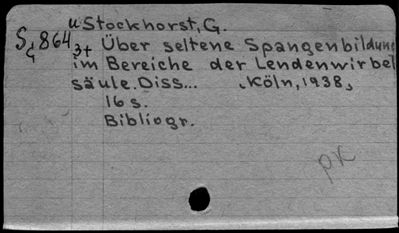 u Stockhorst, G.
S4 864 3+ Über seltene Spangenbildung
im Bereiche der Lendenwirbel
säule. Diss... Köln, 1938.
16 s.
Bibliogr.
PK